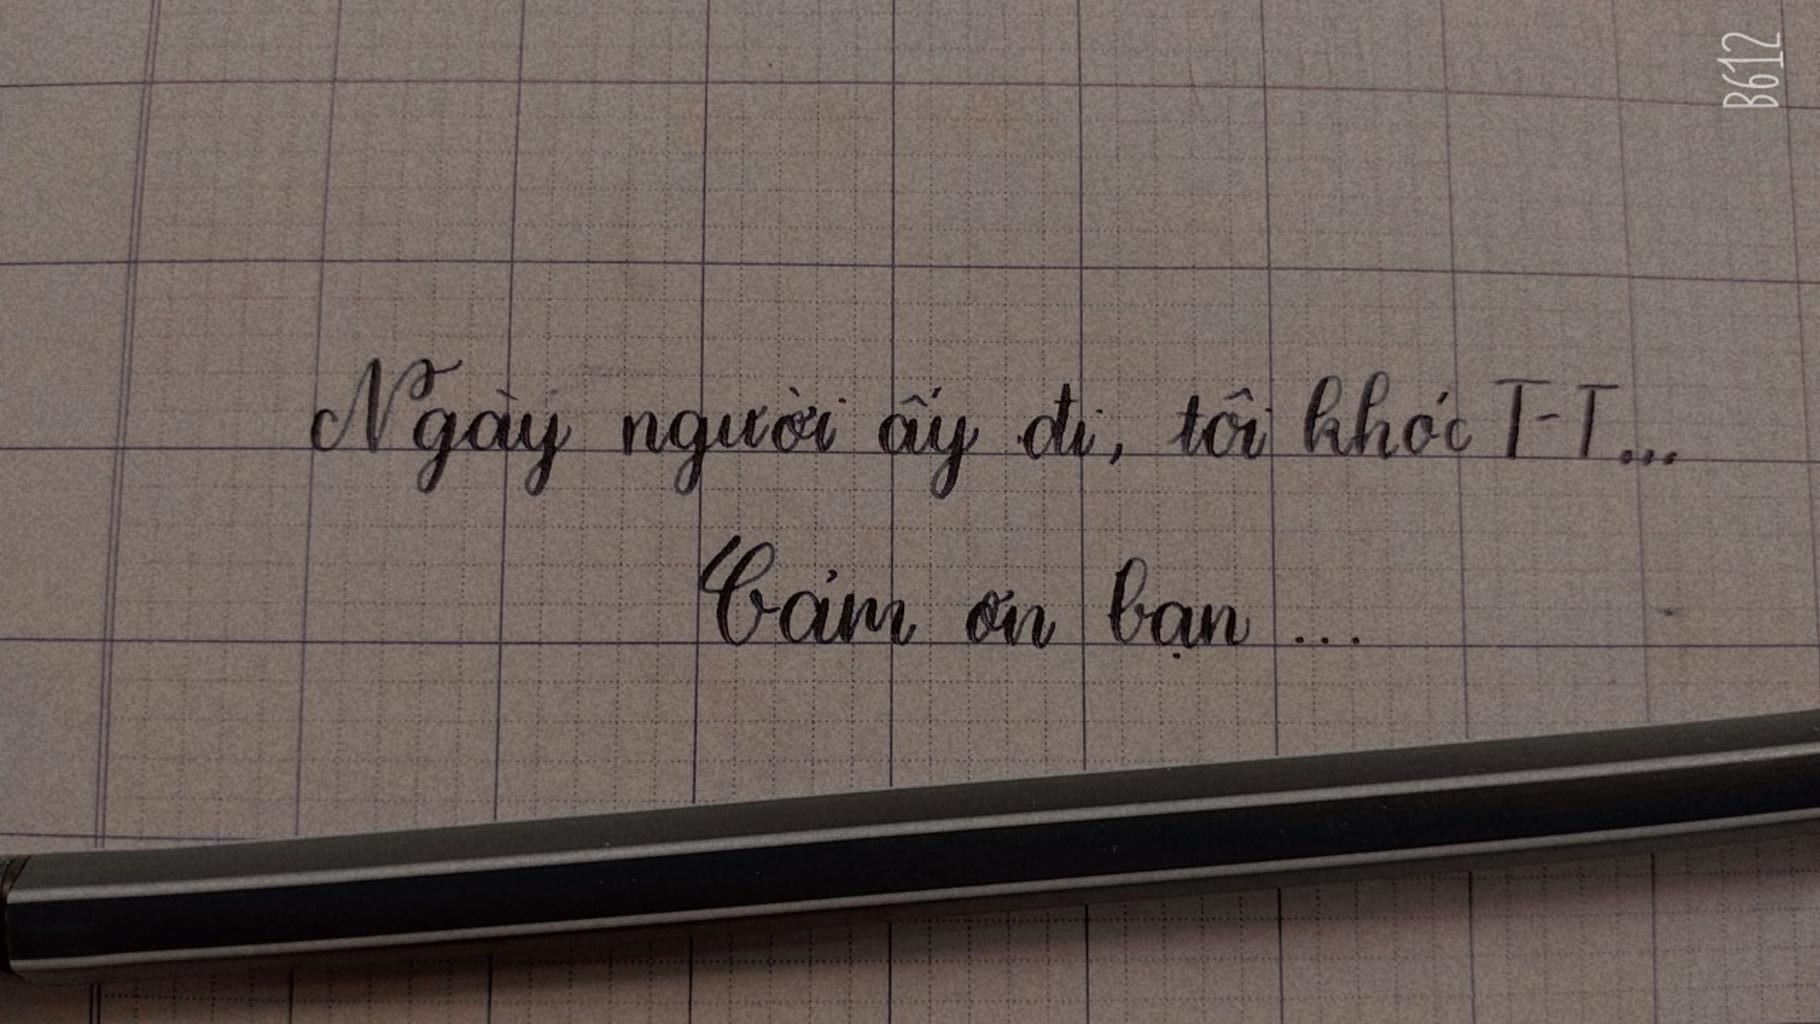 B612
Ngày người ấy đi, tôi khóc T-T...
Cảm ơn bạn ...